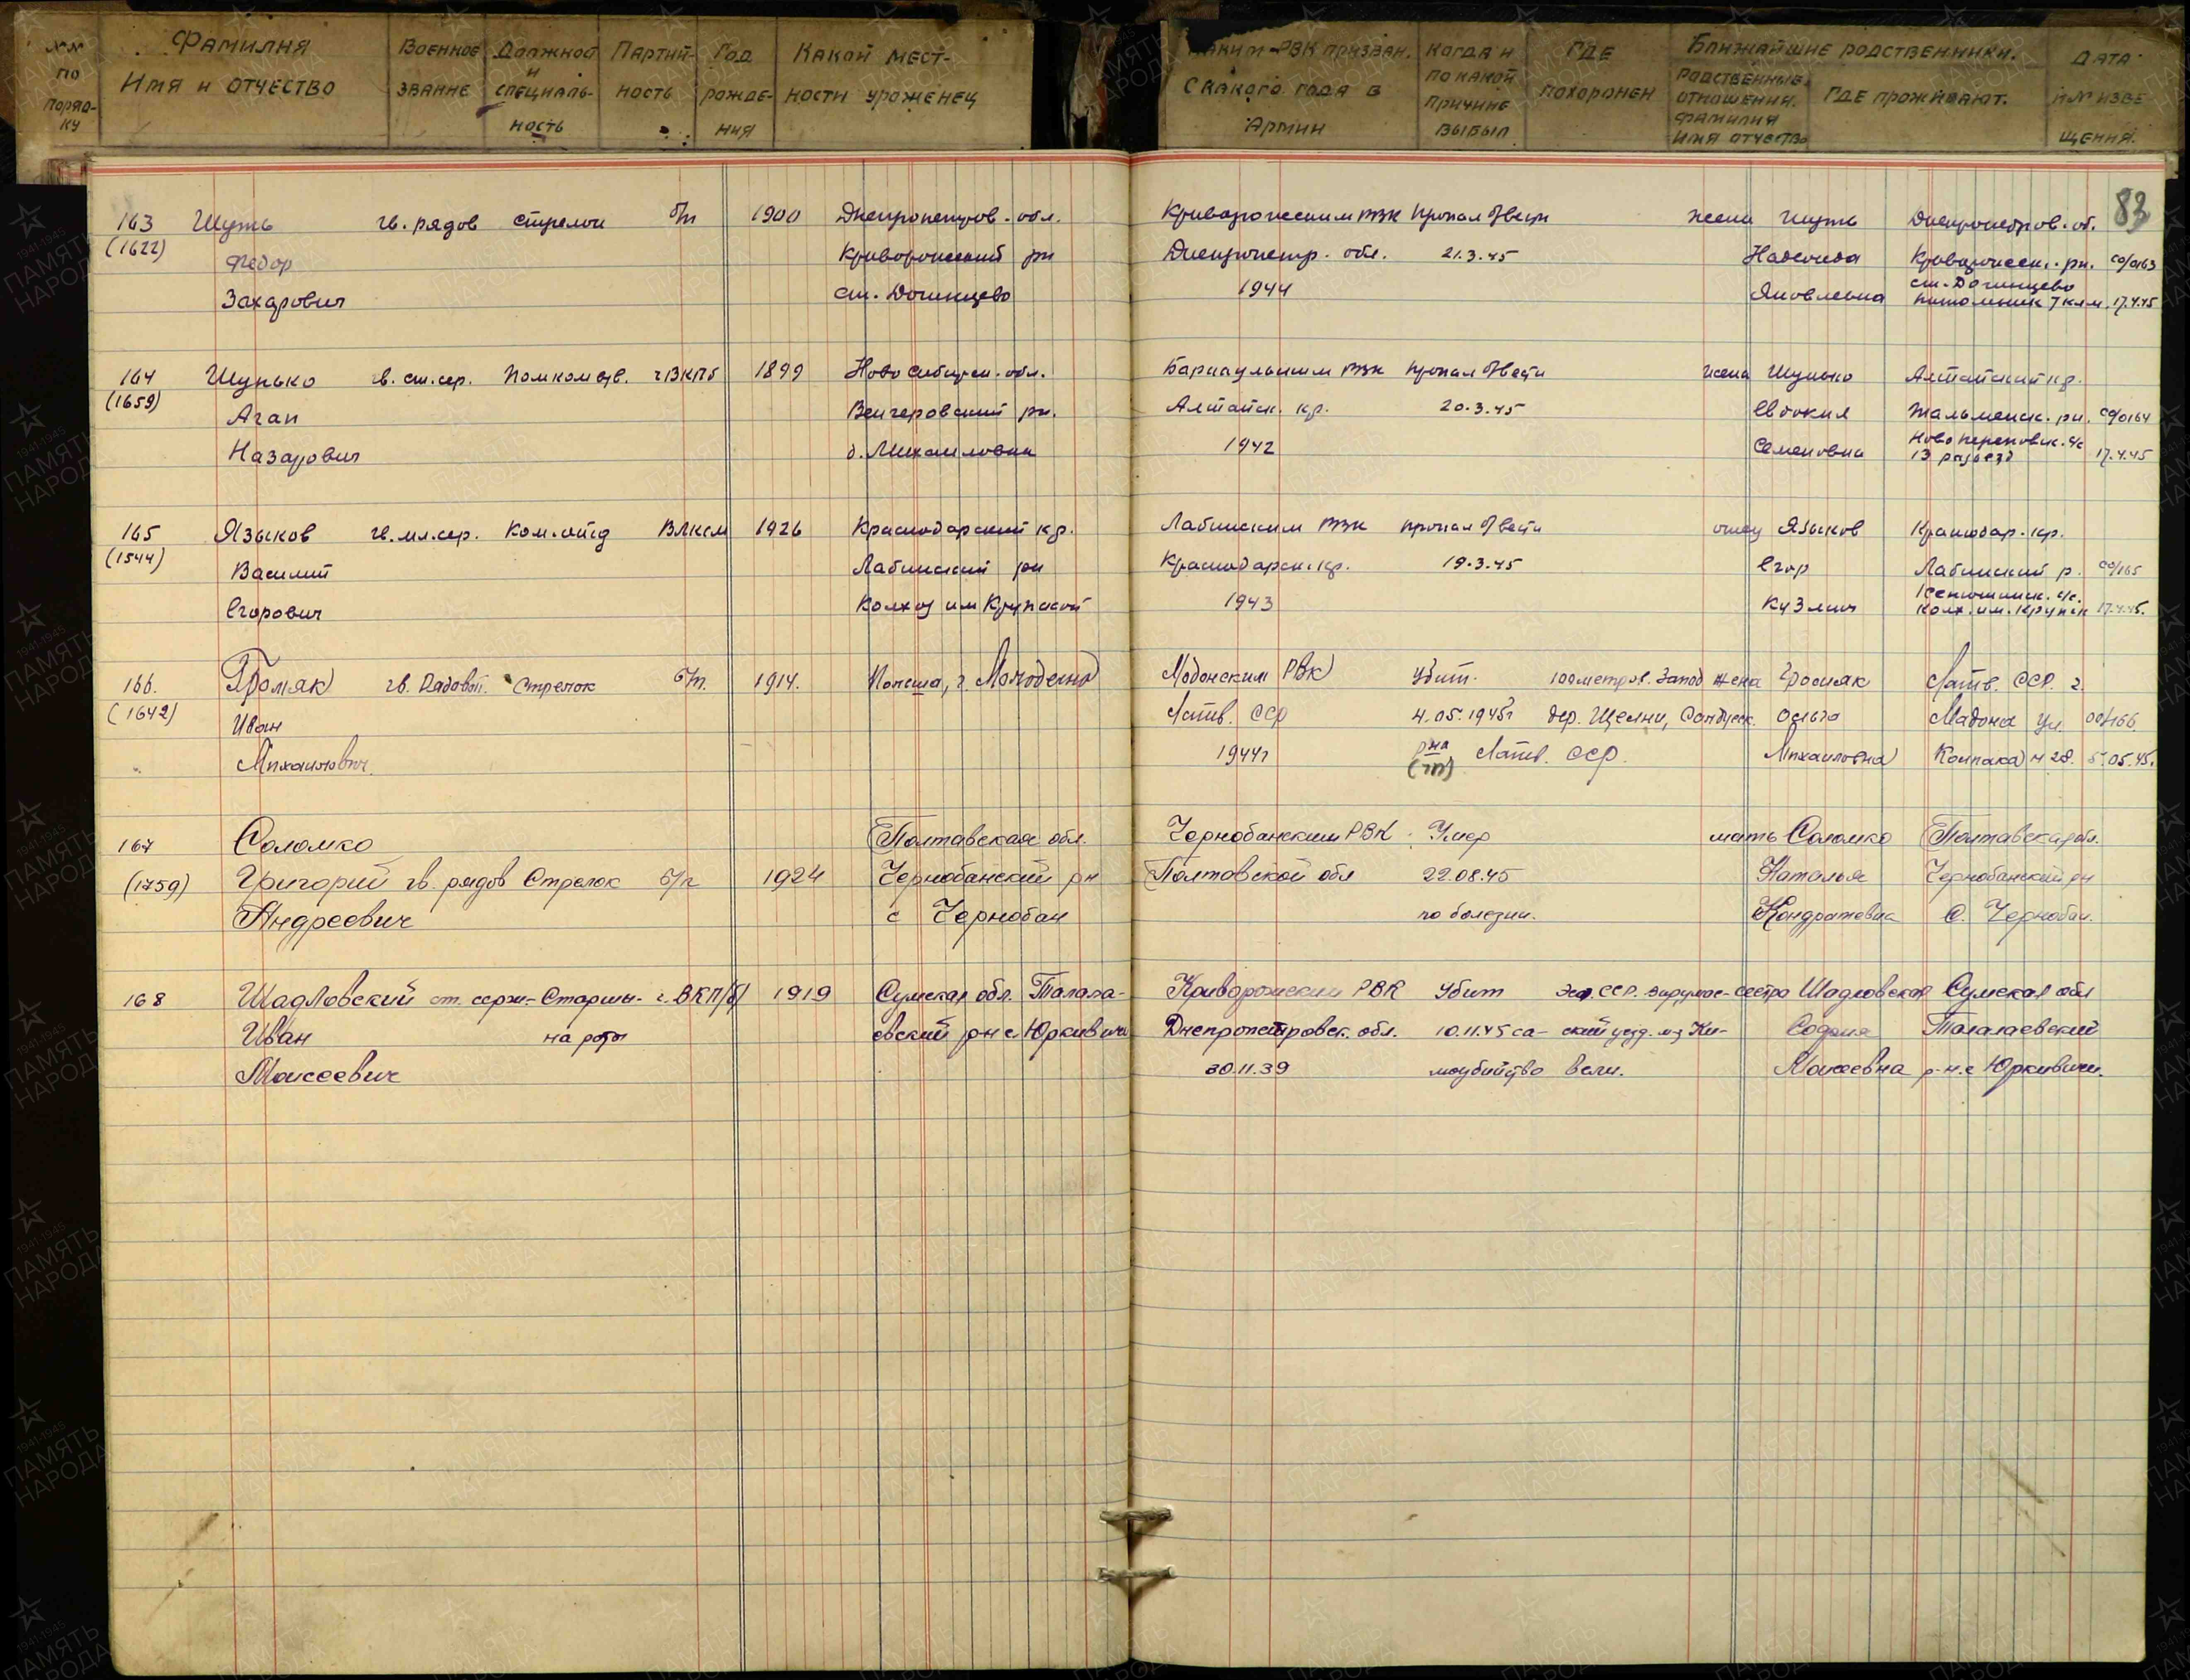 №№ по порядку
Фамилия Имя и отчество
Военное звание
Должност и специальность
Партийность
Год рождения
Какой местности уроженец
Каким РВК призван. С какого года в Армии
Когда и по какой причине выбыл
Где похоронен
Ближайшие родственники.
Родственные отношения. фамилия имя отчество
Где проживают.
Дата и № извещения.
83
163 Шуть гв. рядов стрелок б/п 1900 Днепропетров. обл. Криворожским РВК пропал б/вести жена Шуть Днепропетров. об.
(1622) Федор Криворожский рн Днепропетр. обл. 21.3.45 Надежда Криворожск. рн. со/0163
Захарович ст. Догинцево 1944 Яковлевна ст. Догинцево
питомник 7 клм. 17.4.45
164 Шунько гв. ст. сер. Помкомвзв. чВКПб 1899 Новосибирск. обл. Барнаульским РВК пропал б/вести жена Шунько Алтайский кр.
(1659) Агап Венгеровский рн. Алтайск. кр. 20.3.45 Евдокия Тальменск. рн. со/0164
Назарович д. Михайловка 1942 Семеновна 13 разъезд 17.4.45
165 Языков гв. мл. сер. Ком. отд ВЛКСМ 1926 Краснодарский кр. Лабинским РВК пропал б/вести отец Языков Краснодар. кр.
(1544) Василий Лабинский рн Краснодарск. кр. 19.3.45 Егор Лабинский р. со/165
Егорович Колхоз им Крупской 1943 Кузмич
колх. им. Крупск 17.4.45.
166. Громяк гв. Рядовой. Стрелок б/п. 1914. Польша, г. Молодечно Мадонским РВК Убит. 100 метров. запад жена Громяк Латв. ССР. г.
(1642) Иван Латв. ССР 4.05.1945г дер. Щелни, Ольга Мадона ул. 00/166
Михайлович. 1944г рна Латв. ССР. Михайловна 5.05.45.
167 Соломко Полтавская обл. Чернобаевским РВК Умер мать Соломко Полтавская обл.
(1759) Григорий гв. рядов Стрелок б/п 1924 Чернобаевский рн Полтавской обл 22.08.45 Наталья Чернобаевский рн
Андреевич с Чернобаи по болезни. Кондратевна с. Чернобаи.
168 Шадловский ст. серж- Старши- ч. ВКП/б/ 1919 Сумская обл. Талала- Криворожским РВК Убит Эст. ССР. Вирумас- сестра Шадловская Сумская обл
Иван на роты евский рн с. Юркивичи Днепропетровск. обл. 10.11.45 са- ский уезд. мз Ки- София Талалаевский
Моисеевич 30.11.39 моубийство вели. Моисеевна р-н. с Юркивичи.